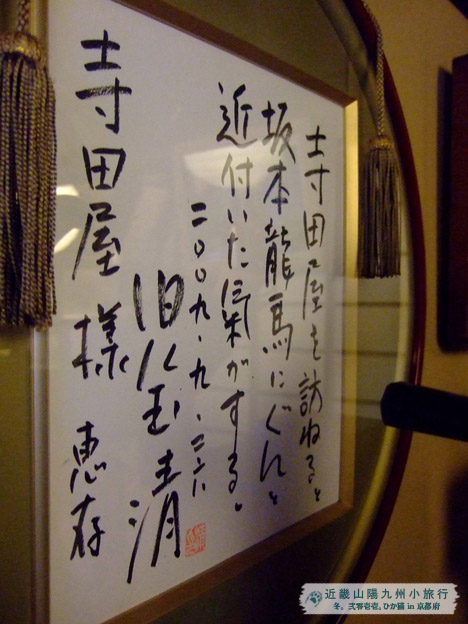 寺田屋を訪ねると
坂本龍馬にぐんと
近付いた氣がする。
二〇〇九.九.
清
寺田屋様 恵存
近畿山陽九州小旅行
冬。弐零壱壱。ひか貓 in 京都府